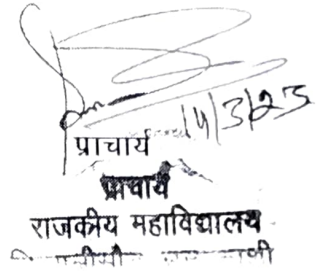 14/3/23
प्राचार्य
प्राचार्य
राजकीय महाविद्यालय